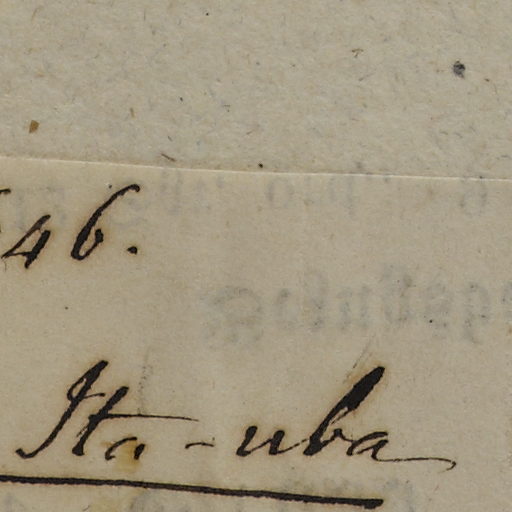 46.
Ita-uba